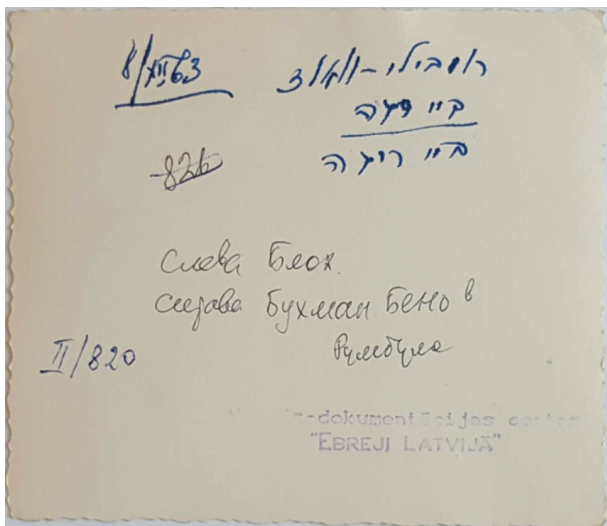 8/XII 63
רומבולי-וואלד
ביי ריגה
ביי ריגה
826
Слева Блох.
справа Бухман Бено в
Румбула
II/820
-dokumentācijas centrs
"EBREJI LATVIJĀ"